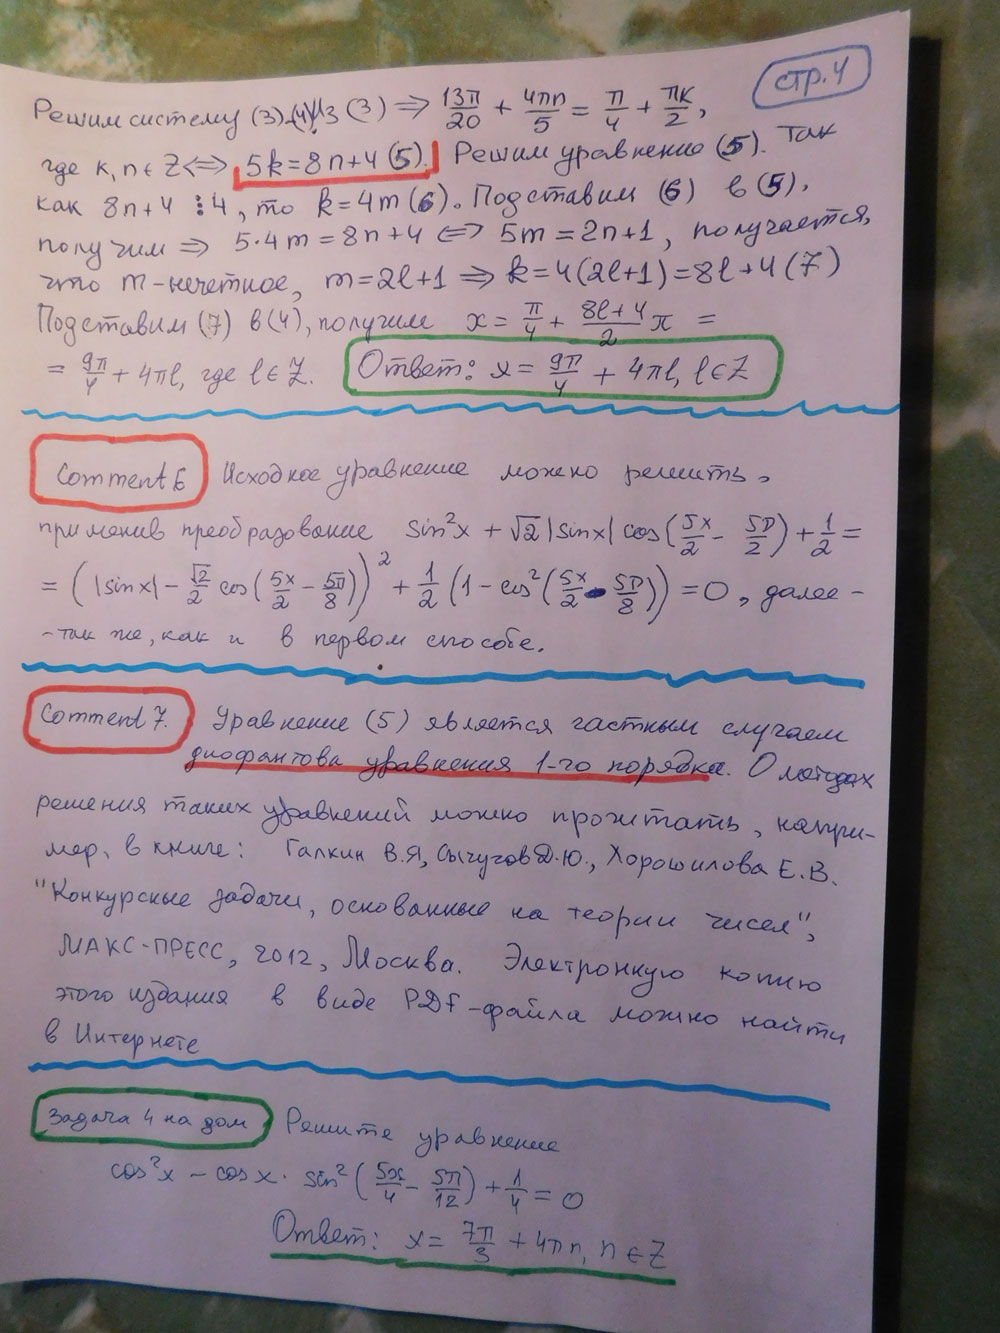 стр.4
Решим систему (3)-(4) Из (3) ⟹ 13π/20 + 4πn/5 = π/4 + πk/2,
где k, n ∈ Z ⟺ 5k = 8n+4 (5). Решим уравнение (5). Так
как 8n+4 ⋮ 4, то k = 4m (6). Подставим (6) в (5),
получим ⟹ 5·4m = 8n+4 ⟺ 5m = 2n+1, получается,
что m-нечетное, m = 2l+1 ⟹ k = 4(2l+1) = 8l+4 (7)
Подставим (7) в (4), получим x = π/4 + (8l+4)/2 π =
= 9π/4 + 4πl, где l ∈ Z. Ответ: x = 9π/4 + 4πl, l ∈ Z
Comment 6 Исходное уравнение можно решить,
применив преобразование sin²x + √2 |sinx| cos(5x/2 - 5π/2) + 1/2 =
= (|sinx| - √2/2 cos(5x/2 - 5π/8))² + 1/2 (1 - cos²(5x/2 - 5π/8)) = 0, далее -
- так же, как и в первом способе.
Comment 7. Уравнение (5) является частным случаем
диофантова уравнения 1-го порядка. О методах
решения таких уравнений можно прочитать, напри-
мер, в книге: Галкин В.Я, Сычугов Д.Ю., Хорошилова Е.В.
"Конкурсные задачи, основанные на теории чисел",
МАКС-ПРЕСС, 2012, Москва. Электронную копию
этого издания в виде PDF-файла можно найти
в Интернете
Задача 4 на дом Решите уравнение
cos²x - cosx · sin²(5x/4 - 5π/12) + 1/4 = 0
Ответ: x = 7π/3 + 4πn, n ∈ Z